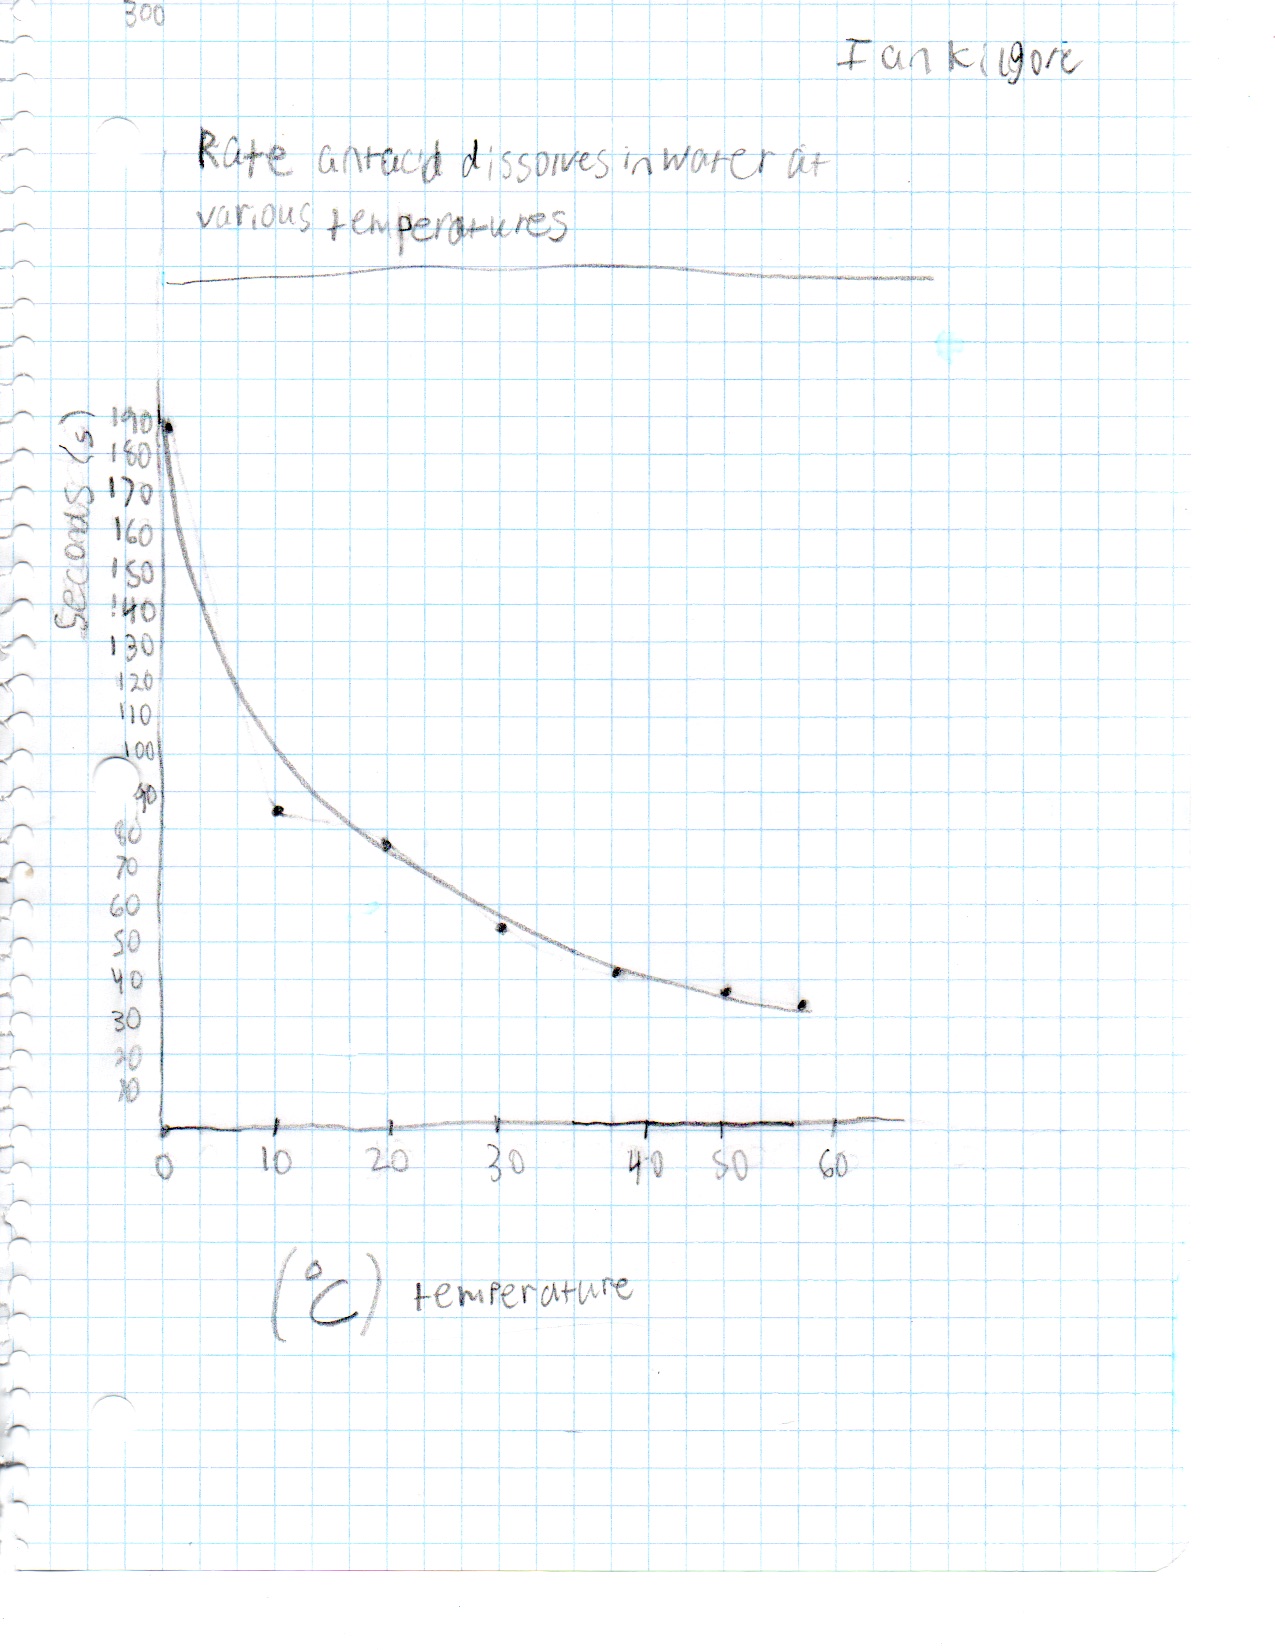 300
Ian Kilgore
Rate antacid dissolves in water at
various temperatures
Seconds (s)
190
180
170
160
150
140
130
120
110
100
90
80
70
60
50
40
30
20
10
0 10 20 30 40 50 60
(°C) temperature